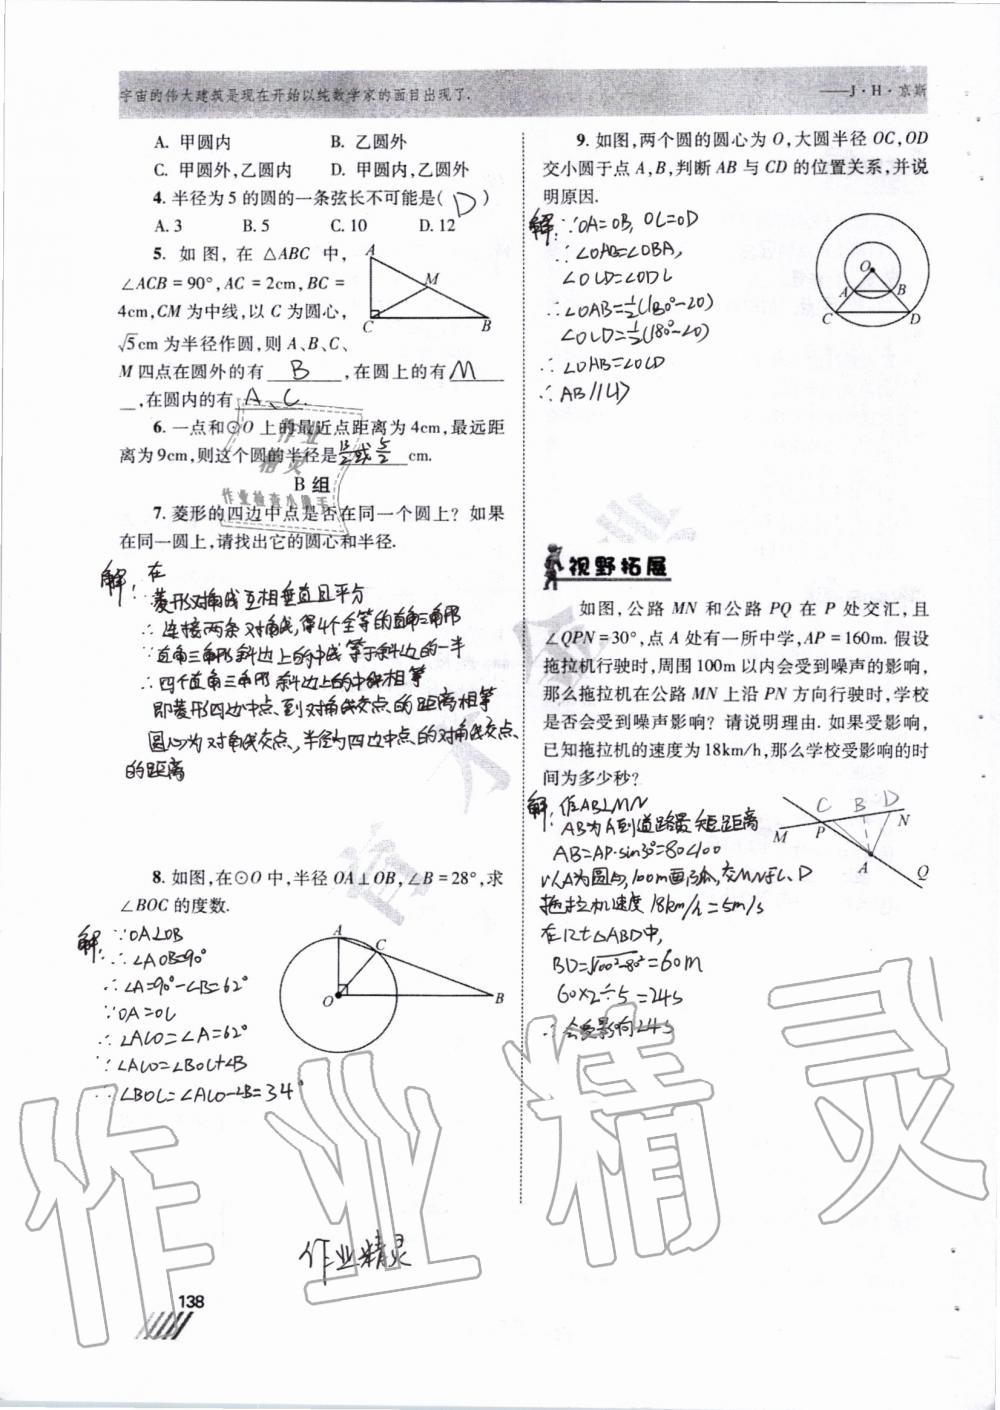 宇宙的伟大建筑是现在开始以纯数学家的面目出现了.
——J·H·京斯
A. 甲圆内 B. 乙圆外
C. 甲圆外,乙圆内 D. 甲圆内,乙圆外
4. 半径为 5 的圆的一条弦长不可能是( D )
A. 3 B. 5 C. 10 D. 12
5. 如图, 在 △ABC 中,
∠ACB = 90°, AC = 2cm, BC =
4cm, CM 为中线, 以 C 为圆心,
√5cm 为半径作圆, 则 A、B、C、
M 四点在圆外的有 B ,在圆上的有 M
,在圆内的有 A、C.
A
M
C
B
6. 一点和⊙O 上的最近点距离为 4cm,最远距
离为 9cm,则这个圆的半径是 13/2或5/2 cm.
作业
精灵
作业检查小帮手
B 组
7. 菱形的四边中点是否在同一个圆上? 如果
在同一圆上,请找出它的圆心和半径.
解: 在
菱形对角线互相垂直且平分
∴连接两条对角线,得4个全等的直角三角形
∵直角三角形斜边上的中线等于斜边的一半
∴四个直角三角形斜边上的中线相等
即菱形四边中点到对角线交点的距离相等
圆心为对角线交点,半径为四边中点的对角线交点
的距离
8. 如图,在⊙O 中,半径 OA⊥OB,∠B = 28°,求
∠BOC 的度数.
解: ∵OA⊥OB
∴∠AOB=90°
∴∠A=90°-∠B=62°
∵OA=OC
∴∠ACO=∠A=62°
∵∠ACO=∠BOC+∠B
∴∠BOC=∠ACO-∠B=34°
A
C
O
B
作业精灵
138
9. 如图,两个圆的圆心为 O,大圆半径 OC,OD
交小圆于点 A,B,判断 AB 与 CD 的位置关系,并说
明原因.
解: ∵OA=OB, OC=OD
∴∠OAB=∠OBA,
∠OCD=∠ODC
∴∠OAB=½(180°-∠O)
∠OCD=½(180°-∠O)
∴∠OAB=∠OCD
∴AB//CD
O
A
B
C
D
视野拓展
如图,公路 MN 和公路 PQ 在 P 处交汇,且
∠QPN=30°,点 A 处有一所中学,AP = 160m. 假设
拖拉机行驶时,周围 100m 以内会受到噪声的影响,
那么拖拉机在公路 MN 上沿 PN 方向行驶时,学校
是否会受到噪声影响? 请说明理由. 如果受影响,
已知拖拉机的速度为 18km/h,那么学校受影响的时
间为多少秒?
解: 作AB⊥MN
AB为A到道路最短距离
AB=AP·sin30°=80<100
以A为圆心,100m画弧,交MN于C、D
拖拉机速度18km/h=5m/s
在Rt△ABD中,
BD=√100²-80²=60m
60×2÷5=24s
∴会受影响24s
C B D
M P N
A
Q
作业精灵